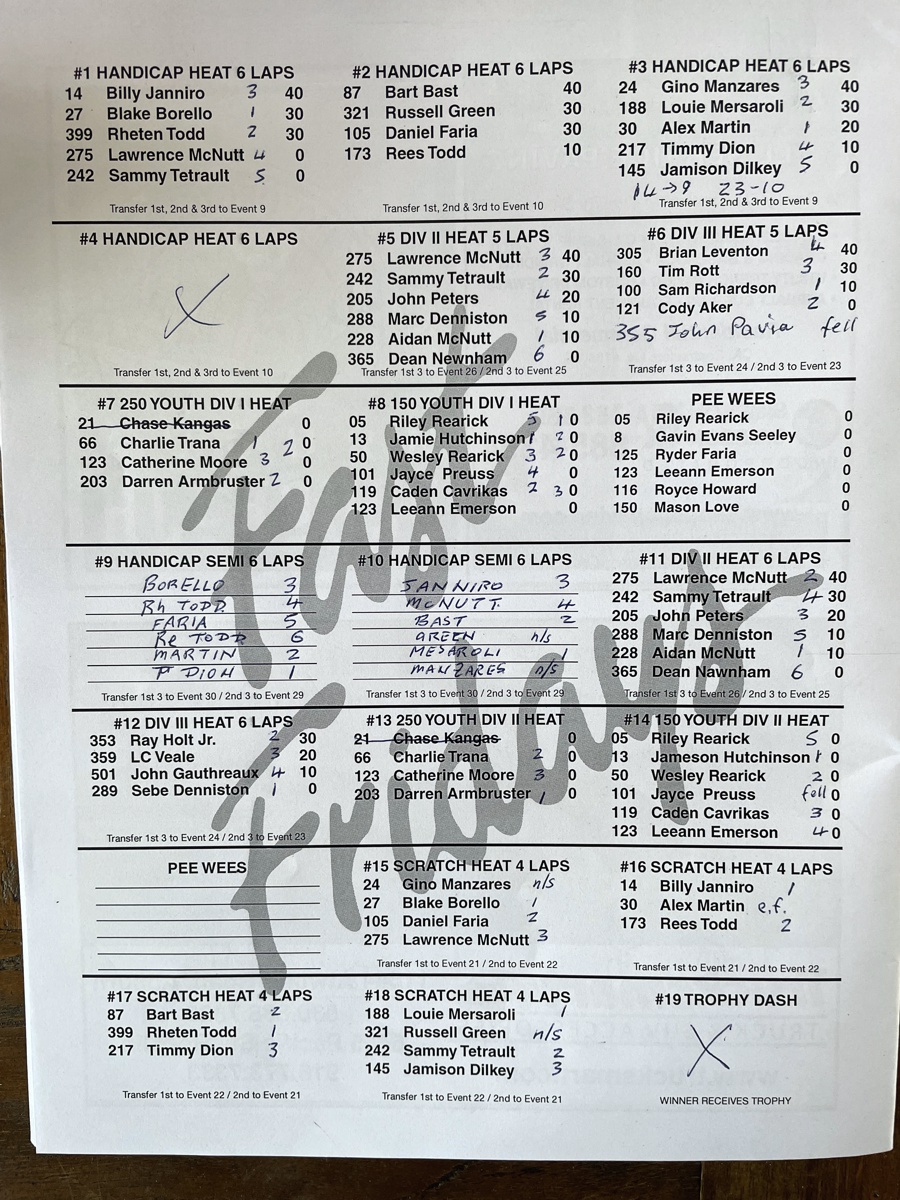 #1 HANDICAP HEAT 6 LAPS
14 Billy Janniro 3 40
27 Blake Borello 1 30
399 Rheten Todd 2 30
275 Lawrence McNutt 4 0
242 Sammy Tetrault 5 0
Transfer 1st, 2nd & 3rd to Event 9
#2 HANDICAP HEAT 6 LAPS
87 Bart Bast 40
321 Russell Green 30
105 Daniel Faria 30
173 Rees Todd 10
Transfer 1st, 2nd & 3rd to Event 10
#3 HANDICAP HEAT 6 LAPS
24 Gino Manzares 3 40
188 Louie Mersaroli 2 30
30 Alex Martin 1 20
217 Timmy Dion 4 10
145 Jamison Dilkey 5 0
14→9 23-10
Transfer 1st, 2nd & 3rd to Event 9
#4 HANDICAP HEAT 6 LAPS
X
Transfer 1st, 2nd & 3rd to Event 10
#5 DIV II HEAT 5 LAPS
275 Lawrence McNutt 3 40
242 Sammy Tetrault 2 30
205 John Peters 4 20
288 Marc Denniston 5 10
228 Aidan McNutt 1 10
365 Dean Newnham 6 0
Transfer 1st 3 to Event 26 / 2nd 3 to Event 25
#6 DIV III HEAT 5 LAPS
305 Brian Leventon 4 40
160 Tim Rott 3 30
100 Sam Richardson 1 10
121 Cody Aker 2 0
355 John Pavia fell
Transfer 1st 3 to Event 24 / 2nd 3 to Event 23
#7 250 YOUTH DIV I HEAT
21 Chase Kangas 0
66 Charlie Trana 1 2 0
123 Catherine Moore 3 0
203 Darren Armbruster 2 0
#8 150 YOUTH DIV I HEAT
05 Riley Rearick 5 1 0
13 Jamie Hutchinson 1 2 0
50 Wesley Rearick 3 2 0
101 Jayce Preuss 4 0
119 Caden Cavrikas 2 3 0
123 Leeann Emerson 0
PEE WEES
05 Riley Rearick 0
8 Gavin Evans Seeley 0
125 Ryder Faria 0
123 Leeann Emerson 0
116 Royce Howard 0
150 Mason Love 0
#9 HANDICAP SEMI 6 LAPS
BORELLO 3
Rh TODD 4
FARIA 5
Re TODD 6
MARTIN 2
T DION 1
Transfer 1st 3 to Event 30 / 2nd 3 to Event 29
#10 HANDICAP SEMI 6 LAPS
JANNIRO 3
McNUTT 4
BAST 2
GREEN n/s
MESAROLI 1
MANZARES n/s
Transfer 1st 3 to Event 30 / 2nd 3 to Event 29
#11 DIV II HEAT 6 LAPS
275 Lawrence McNutt 2 40
242 Sammy Tetrault 4 30
205 John Peters 3 20
288 Marc Denniston 5 10
228 Aidan McNutt 1 10
365 Dean Nawnham 6 0
Transfer 1st 3 to Event 26 / 2nd 3 to Event 25
#12 DIV III HEAT 6 LAPS
353 Ray Holt Jr. 2 30
359 LC Veale 3 20
501 John Gauthreaux 4 10
289 Sebe Denniston 1 0
Transfer 1st 3 to Event 24 / 2nd 3 to Event 23
#13 250 YOUTH DIV II HEAT
21 Chase Kangas 0
66 Charlie Trana 2 0
123 Catherine Moore 3 0
203 Darren Armbruster 1 0
#14 150 YOUTH DIV II HEAT
05 Riley Rearick 5 0
13 Jameson Hutchinson 1 0
50 Wesley Rearick 2 0
101 Jayce Preuss fell 0
119 Caden Cavrikas 3 0
123 Leeann Emerson 4 0
PEE WEES
#15 SCRATCH HEAT 4 LAPS
24 Gino Manzares n/s
27 Blake Borello 1
105 Daniel Faria 2
275 Lawrence McNutt 3
Transfer 1st to Event 21 / 2nd to Event 22
#16 SCRATCH HEAT 4 LAPS
14 Billy Janniro 1
30 Alex Martin e.f.
173 Rees Todd 2
Transfer 1st to Event 21 / 2nd to Event 22
#17 SCRATCH HEAT 4 LAPS
87 Bart Bast 2
399 Rheten Todd 1
217 Timmy Dion 3
Transfer 1st to Event 22 / 2nd to Event 21
#18 SCRATCH HEAT 4 LAPS
188 Louie Mersaroli 1
321 Russell Green n/s
242 Sammy Tetrault 2
145 Jamison Dilkey 3
Transfer 1st to Event 22 / 2nd to Event 21
#19 TROPHY DASH
X
WINNER RECEIVES TROPHY
Fast
Fridays